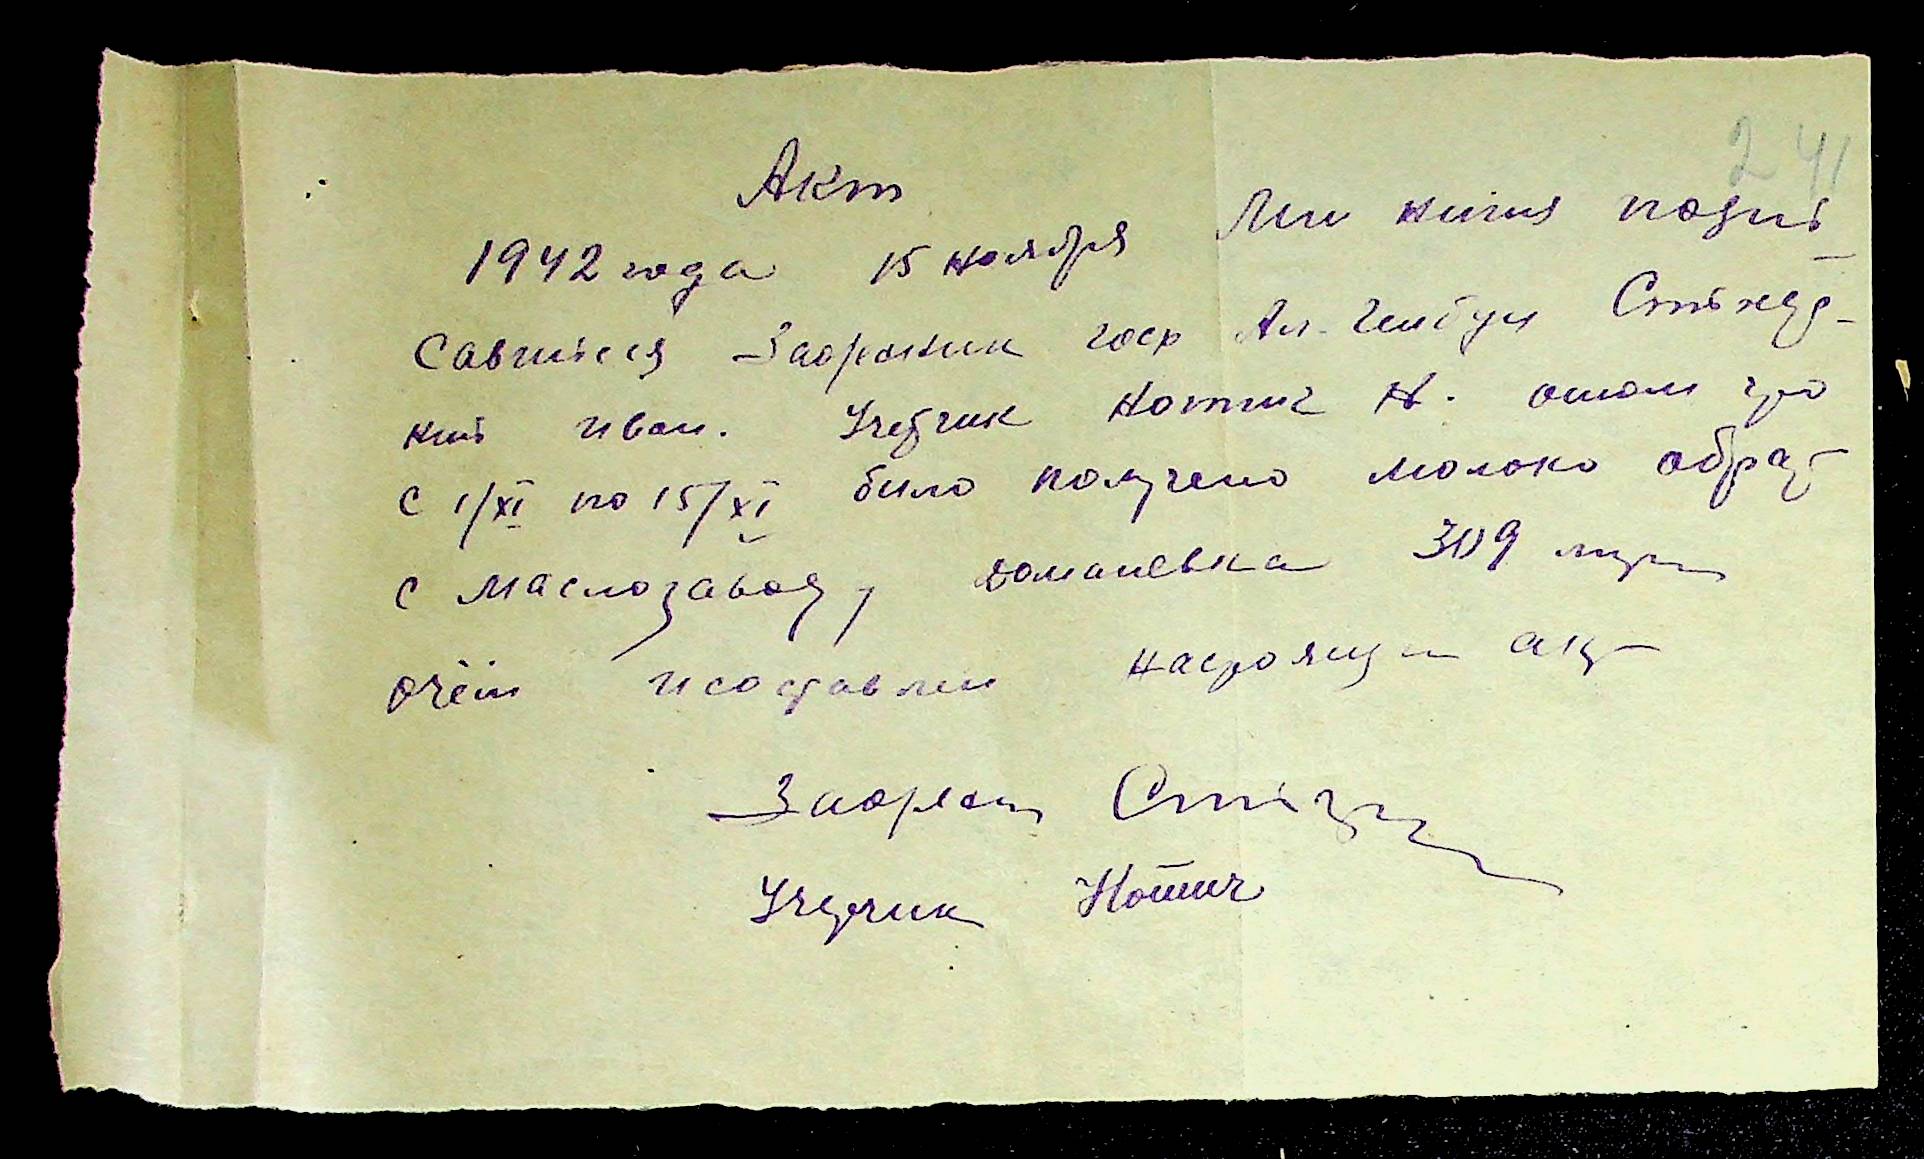 241
Акт
1942 года 15 ноября Ми нижи подпи
савшиеся Заорании госр Ал.
ний Иван. Учетчик Нотич Н. о том что
с 1/XI по 15/XI било получено молоко обрат
с маслозаводу Доманевка 309 литр
очём и составлен настоящи акт
Учетчик Нотич